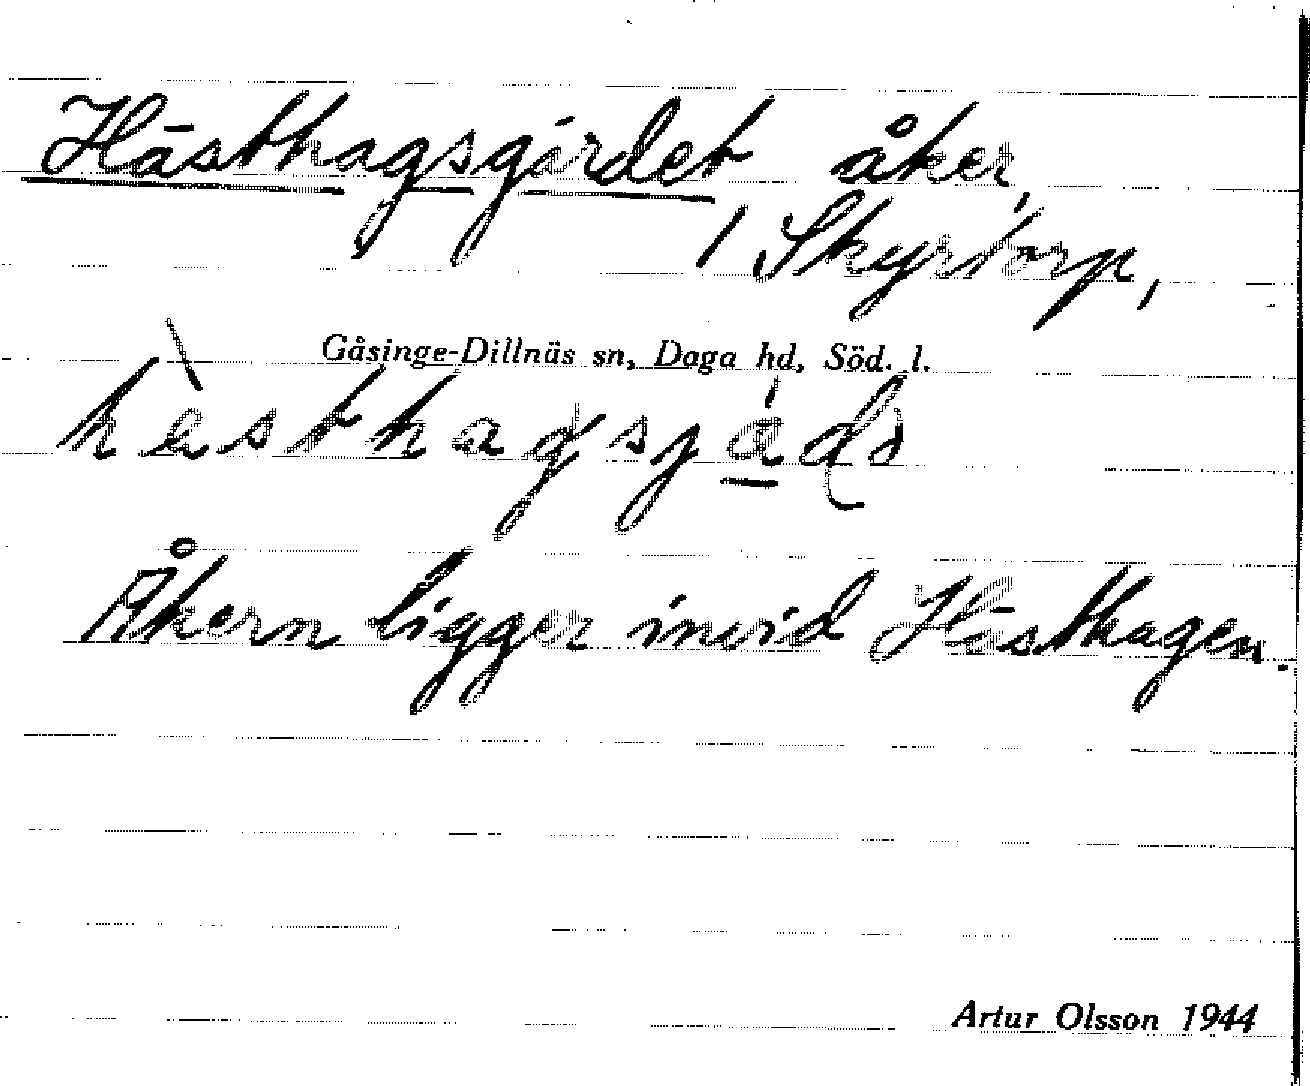 Hästhagsgärdet åker,
/ Skyrtorp,
Gåsinge-Dillnäs sn, Daga hd, Söd. l.
Åkern ligger invid Hästhagen.
Artur Olsson 1944